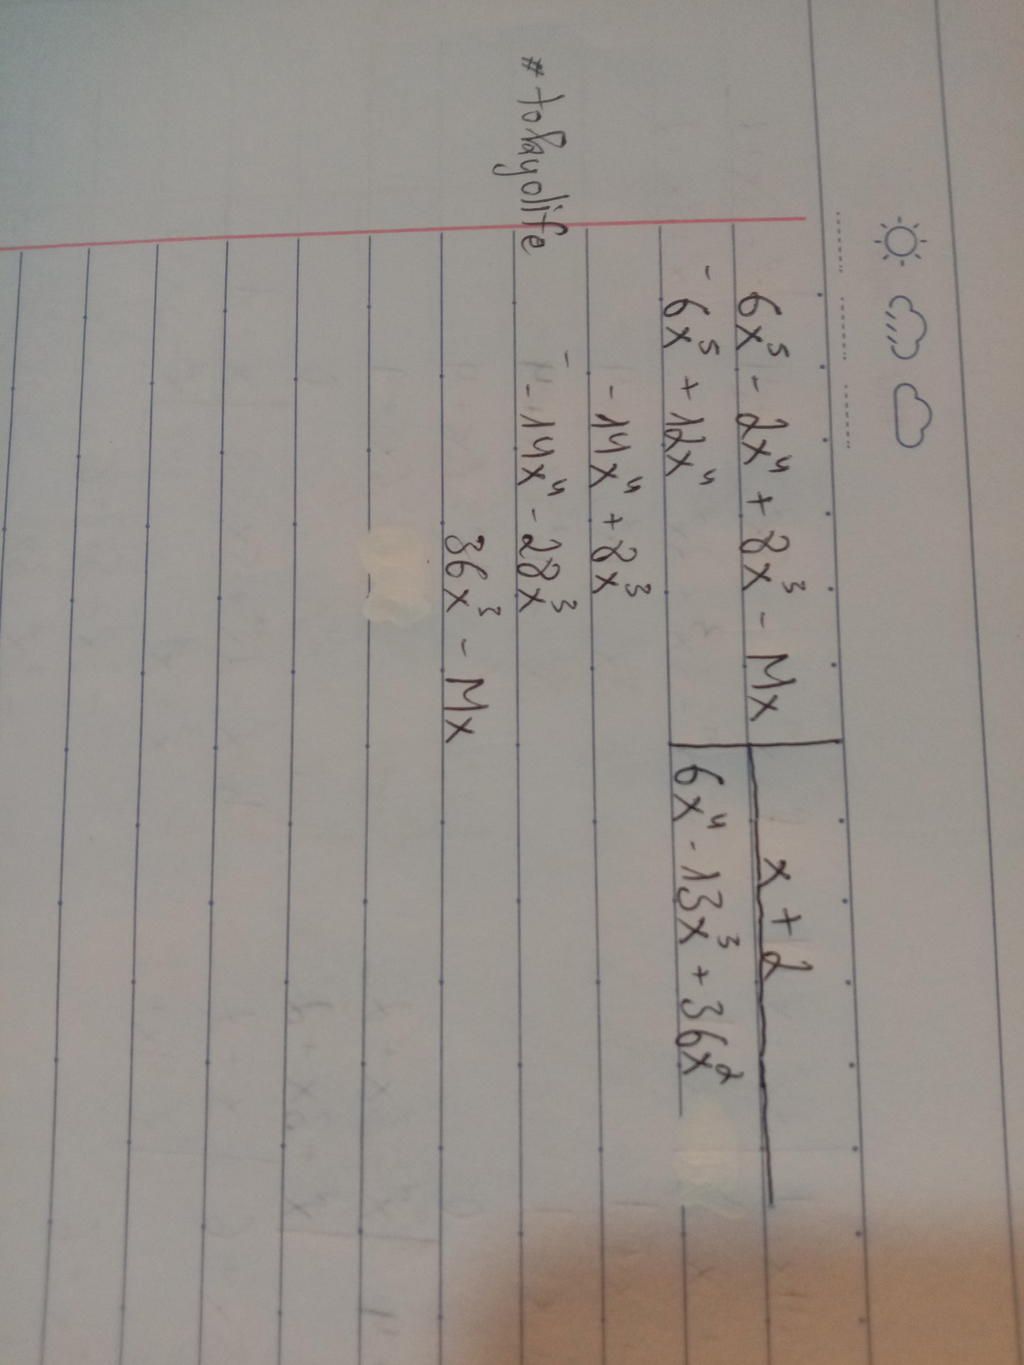 6x⁵ - 2x⁴ + 8x³ - Mx | x + 2
- 6x⁵ + 12x⁴ | 6x⁴ - 13x³ + 36x²
- 14x⁴ + 8x³
- - 14x⁴ - 28x³
36x³ - Mx